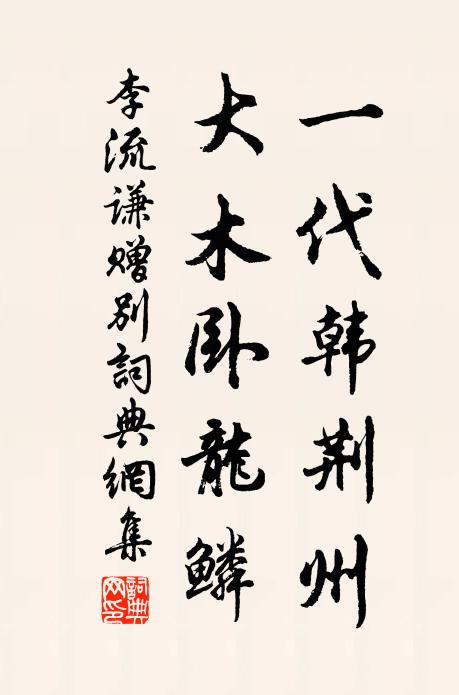 一代韩荆州
大木卧龍鳞
李流谦赠别詞典網集
詞典网印